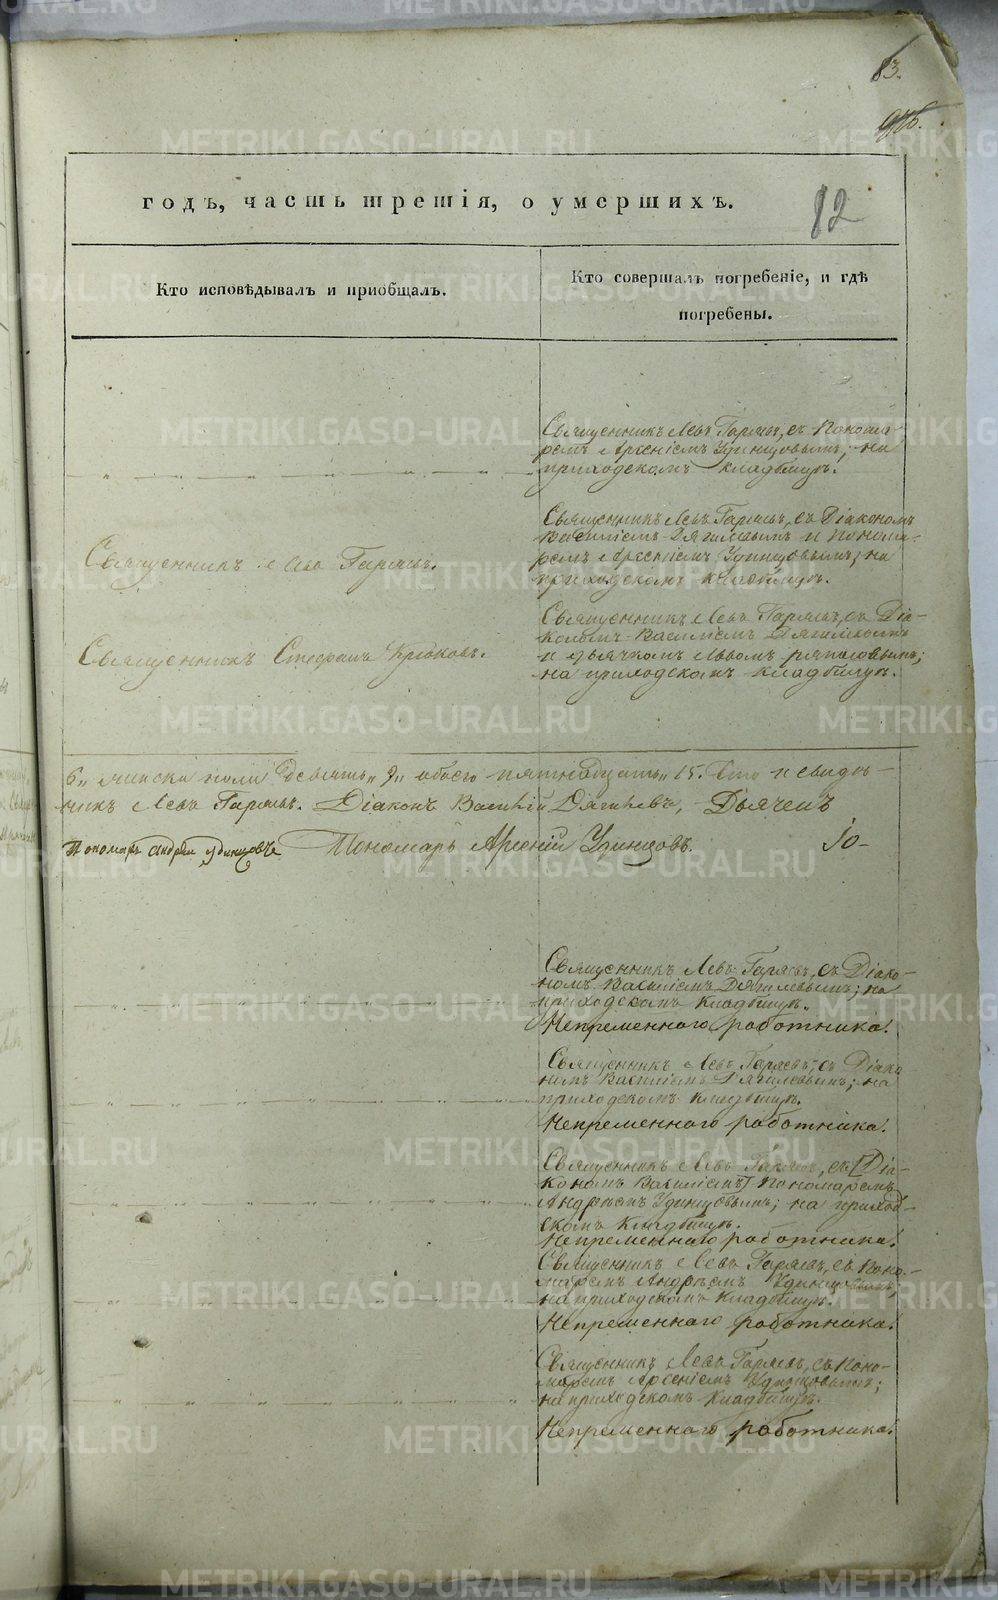 83.
годъ, часть третія, о умершихъ.
82
Кто исповѣдывалъ и пріобщалъ.
Кто совершалъ погребеніе, и гдѣ
погребены.
Священникъ Левъ Гаряевъ, съ Понома-
ремъ Арсеніемъ Удинцовымъ; на
приходскомъ кладбищѣ.
Священникъ Левъ Гаряевъ.
Священникъ Левъ Гаряевъ, съ Діакономъ
Василіемъ Дягилевымъ и Понома-
ремъ Арсеніемъ Удинцовымъ; на
приходскомъ кладбищѣ.
Священникъ Стефанъ Крюковъ.
Священникъ Левъ Гаряевъ, съ Діа-
кономъ Василіемъ Дягилевымъ
и дьячкомъ Львомъ
на приходскомъ кладбищѣ.
6„ женска пола девять„ 9„ обоего пятнадцать„ 15.
никъ Левъ Гаряевъ. Діаконъ Василій Дягилевъ, Дьячекъ
Пономарь Андрей Удинцовъ Пономарь Арсеній Удинцовъ.
Священникъ Левъ Гаряевъ, съ Діако-
номъ Василіемъ Дягилевымъ; на
приходскомъ кладбищѣ.
Непременнаго работника.
Священникъ Левъ Гаряевъ, съ Діако-
номъ Василіемъ Дягилевымъ; на
приходскомъ кладбищѣ.
Непременнаго работника.
Священникъ Левъ Гаряевъ, съ [Діа-
кономъ Василіемъ] Пономаремъ
Андреемъ Удинцовымъ; на приход-
скомъ кладбищѣ.
Непременнаго работника.
Священникъ Левъ Гаряевъ, съ Поно-
маремъ Андреемъ Удинцовымъ;
на приходскомъ кладбищѣ.
Непременнаго работника.
Священникъ Левъ Гаряевъ, съ Поно-
маремъ Арсеніемъ Удинцовымъ;
на приходскомъ кладбищѣ.
Непременнаго работника.
METRIKI.GASO-URAL.RU